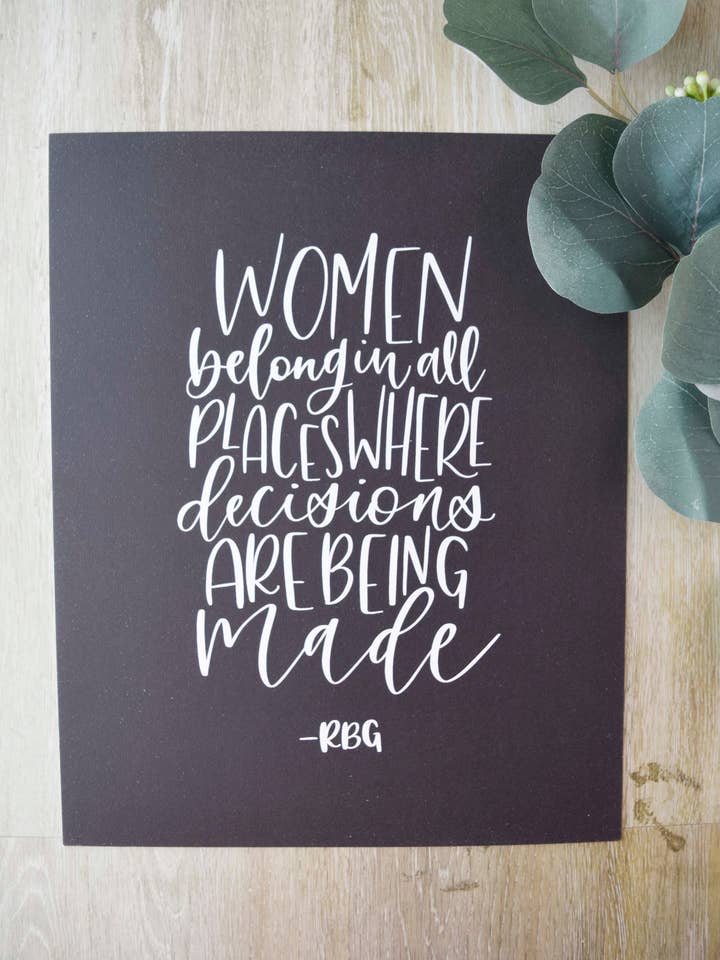 WOMEN
belong in all
PLACES WHERE
decisions
ARE BEING
made
-RBG